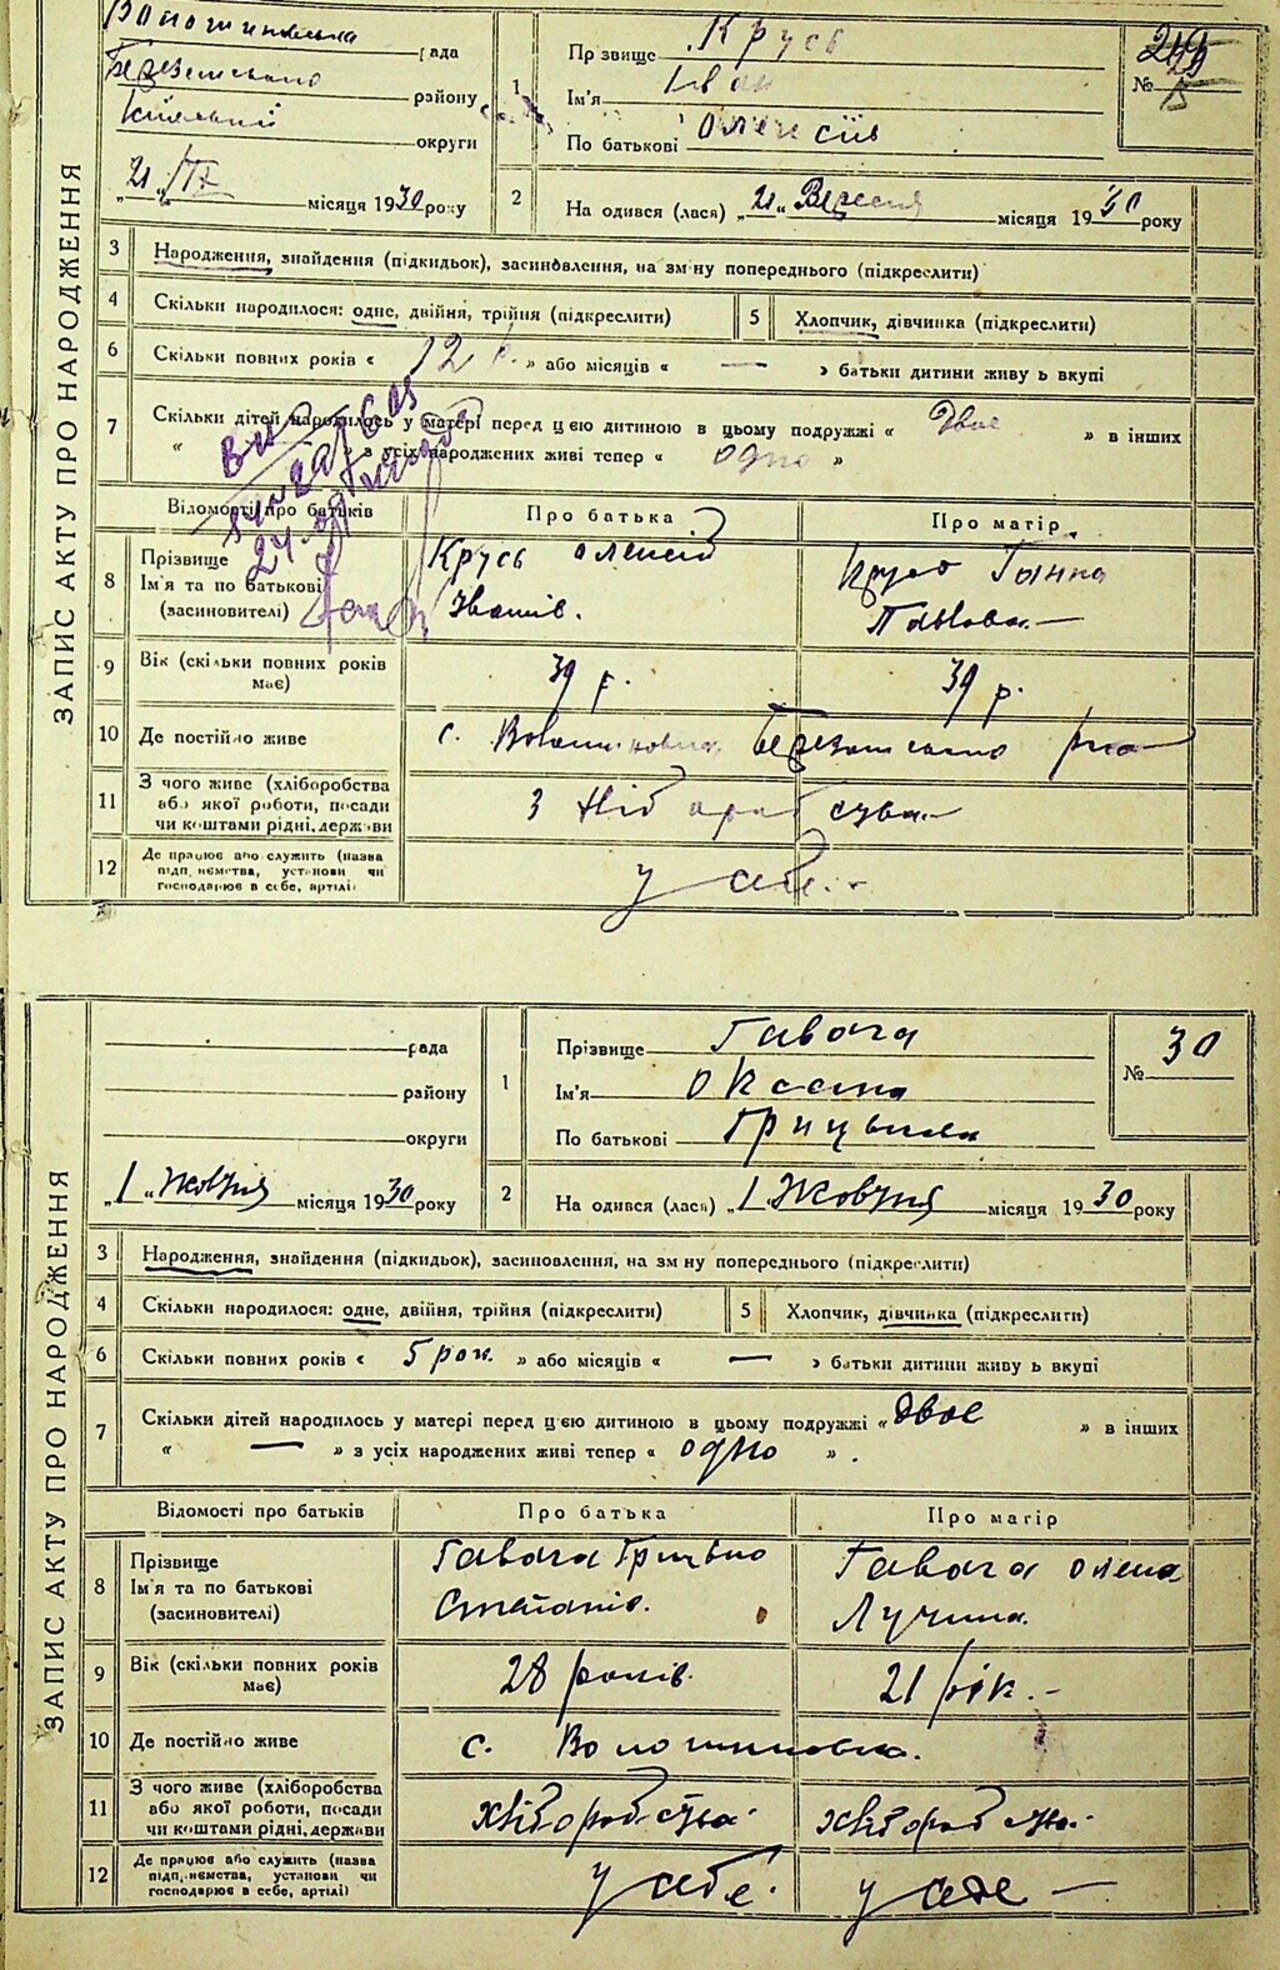 ЗАПИС АКТУ ПРО НАРОДЖЕННЯ
Волошинівська рада
Березанського району
Київської округи
„21„ IX місяця 1930 року
1 Прізвище Крусь
Ім'я Іван
По батькові Олексіїв
№
2 Народився (лася) „21„ Вересня місяця 1930 року
3 Народження, знайдення (підкидьок), засиновлення, на зміну попереднього (підкреслити)
4 Скільки народилося: одне, двійня, трійня (підкреслити) 5 Хлопчик, дівчинка (підкреслити)
6 Скільки повних років « 12 р. » або місяців « — » батьки дитини живуть вкупі
7 Скільки дітей народилось у матері перед цією дитиною в цьому подружжі « Двоє » в інших
« » з усіх народжених живі тепер « одно »
Відомості про батьків Про батька Про матір
8 Прізвище Ім'я та по батькові (засиновителі) Крусь Олексій Іванів. Крусь Ганна Павлова. —
9 Вік (скільки повних років має) 39 р. 39 р.
10 Де постійно живе с. Волошиновка Березанського р-на
11 З чого живе (хліборобства або якої роботи, посади чи коштами рідні, держави З хліборобства. —
12 Де працює або служить (назва підприємства, установи чи господарює в себе, артілі) у себе. -
ЗАПИС АКТУ ПРО НАРОДЖЕННЯ
рада
району
округи
„1„ Жовтня місяця 1930 року
1 Прізвище Гавага
Ім'я Оксана
По батькові Грицьківна
№ 30
2 Народився (лася) „1„ Жовтня місяця 1930 року
3 Народження, знайдення (підкидьок), засиновлення, на зміну попереднього (підкреслити)
4 Скільки народилося: одне, двійня, трійня (підкреслити) 5 Хлопчик, дівчинка (підкреслити)
6 Скільки повних років « 5 рок. » або місяців « — » батьки дитини живуть вкупі
7 Скільки дітей народилось у матері перед цією дитиною в цьому подружжі « двоє » в інших
« — » з усіх народжених живі тепер « одно » .
Відомості про батьків Про батька Про матір
8 Прізвище Ім'я та по батькові (засиновителі) Гавага Грицько Степанів. Гавага Олена Лучина.
9 Вік (скільки повних років має) 28 років. 21 рік. -
10 Де постійно живе с. Волошиновка.
11 З чого живе (хліборобства або якої роботи, посади чи коштами рідні, держави хліборобства. хліборобства.
12 Де працює або служить (назва підприємства, установи чи господарює в себе, артілі) у себе. у себе —